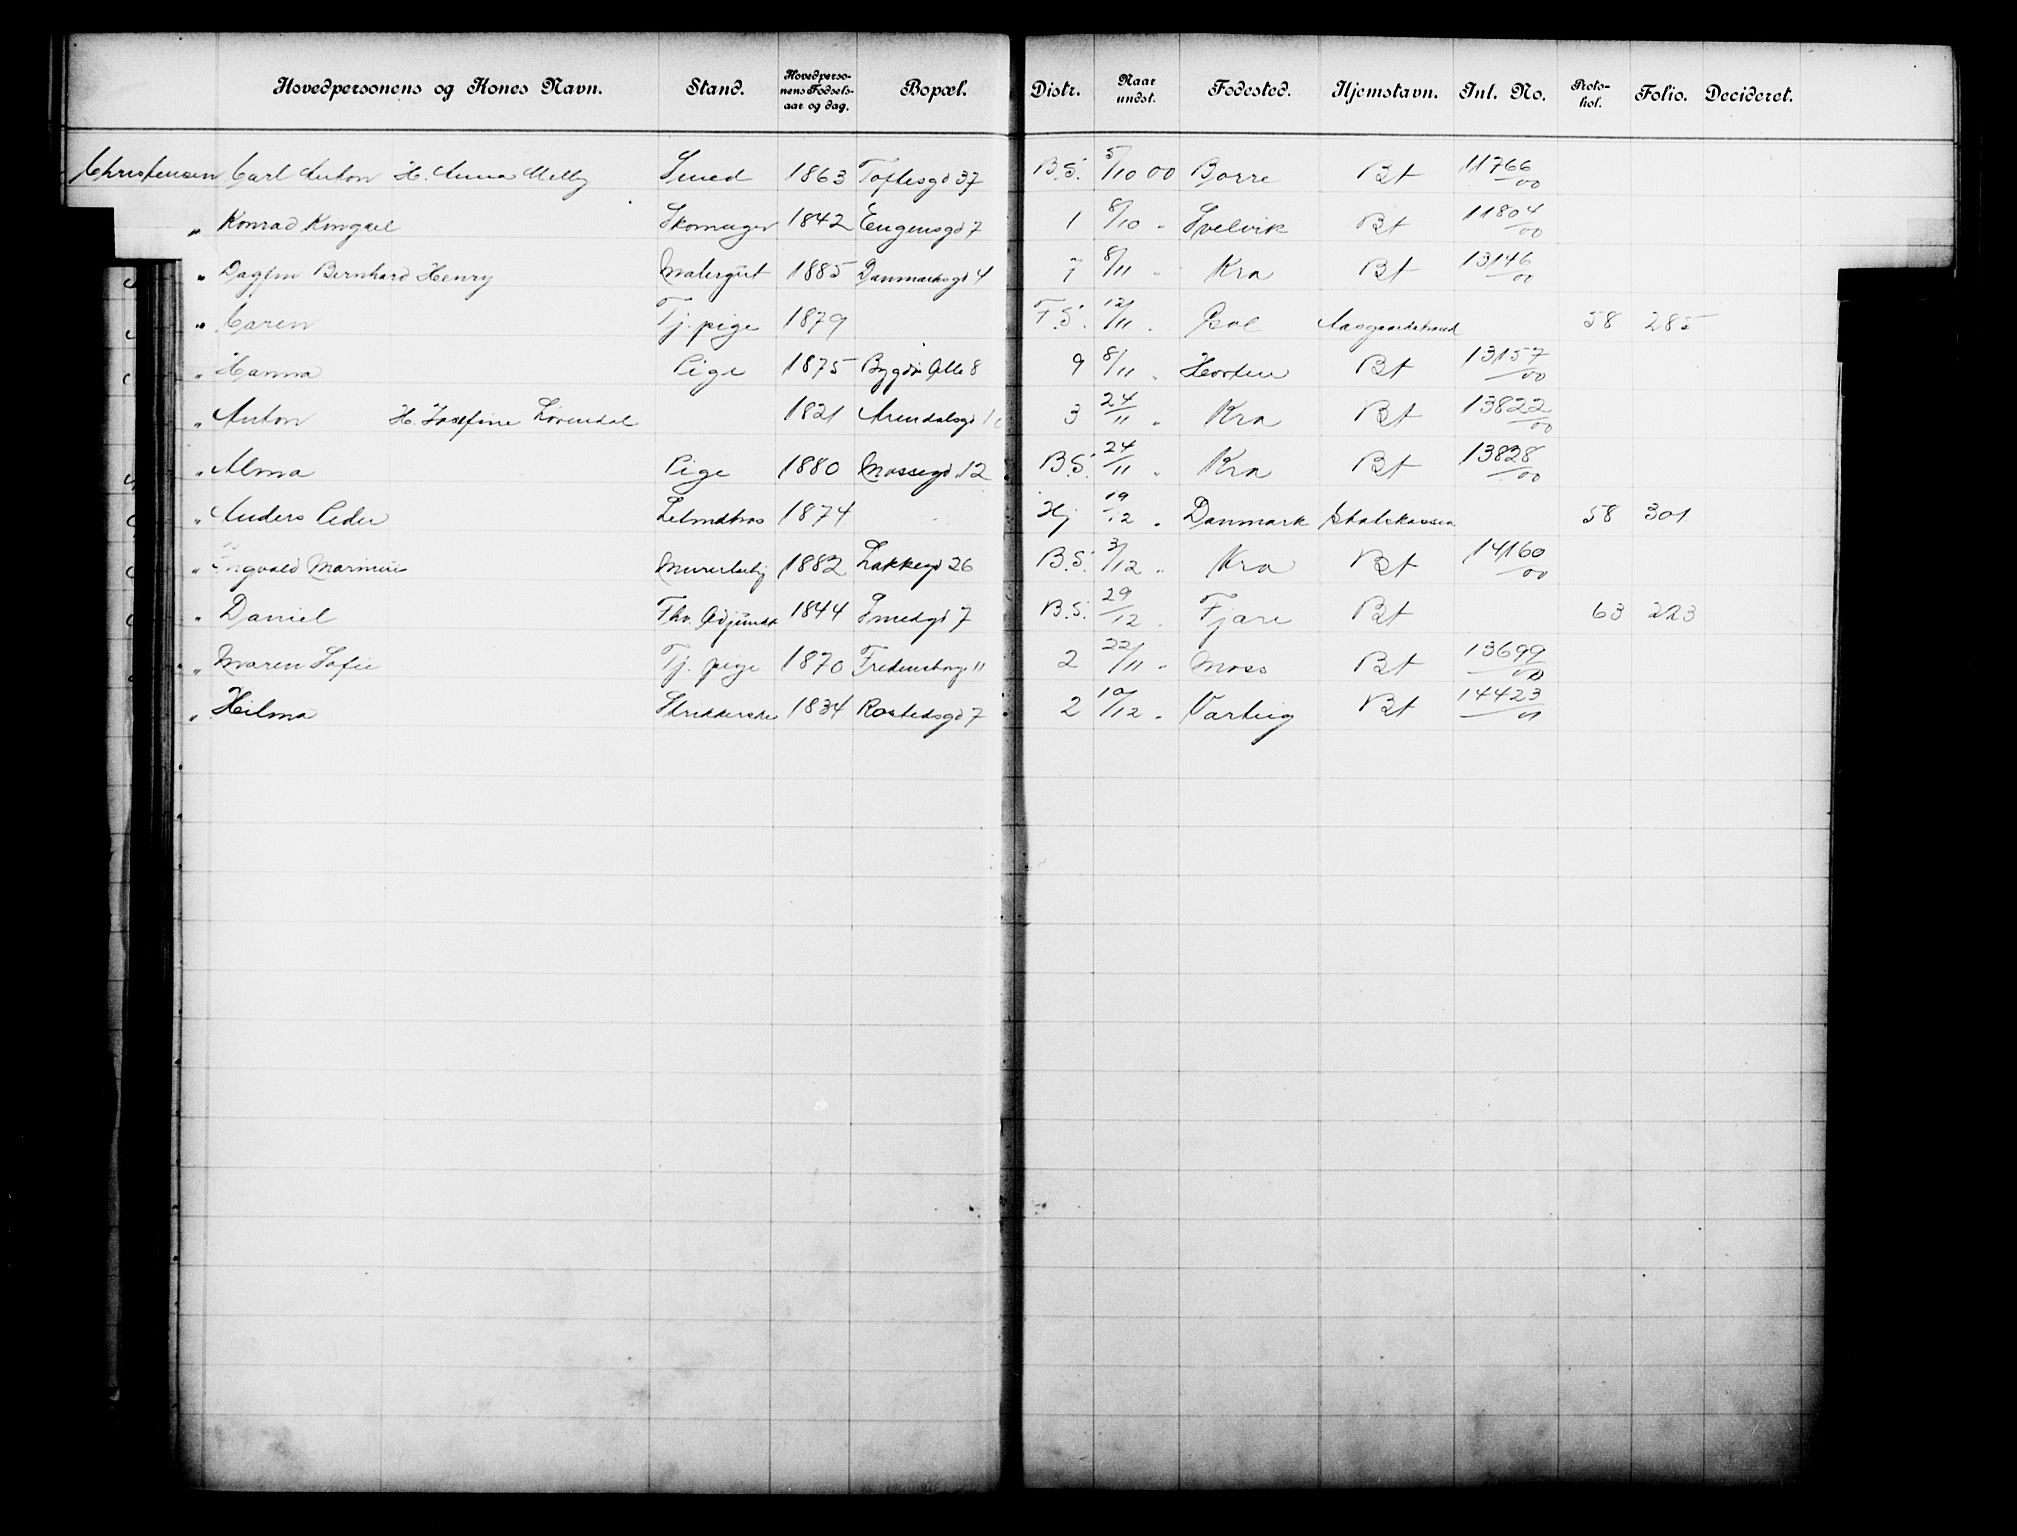 Hovedpersonens og Kones Navn. Stand. Hovedpersonens Fødselsaar og dag. Bopæl. Distr. Naar undst. Fødested. Hjemstavn. Inl. No. Protokol. Folio. Decideret.
Christensen Carl Anton H. Anna Melby Smed 1863 Toftesgd 37 B.S. 5/10 00 Borre Bt 11766/00
" Konrad Skomager 1842 Eugensgd 7 1 8/10 " Svelvik Bt 11804/00
" Dagfin Bernhard Henry Malergut 1885 Danmarksgd 4 7 8/11 " Kra Bt 13146/00
" Caren Tj. pige 1879 F.S. 12/11 " Aasgaardstrand 58 285
" Hanna Pige 1875 Bygdø Alle 8 9 8/11 " Horten Bt 13157/00
" Anton H. Josefine Lovendal 1821 Arendalsgd 3 24/11 " Kra Bt 13822/00
" Alma Pige 1880 Mossegd. 12 B.S. 24/11 " Kra Bt 13828/00
" Anders Peder 1874 Hj 19/12 " Danmark Statskassen 58 301
" Ingvald Marinius Murerarb 1882 Lakkegd 26 B.S. 3/12 " Kra Bt 14160/00
" Daniel Fhv. Adjunkt 1844 Smedgd 7 B.S. 29/12 " Fjare Bt 63 223
" Maren Sofie Tj. pige 1870 Fredensborg 11 2 22/11 " Moss Bt 13699/00
" Hilma Strikkerske 1834 Rostedsgd 7 2 10/12 " Varteig Bt 14423/01